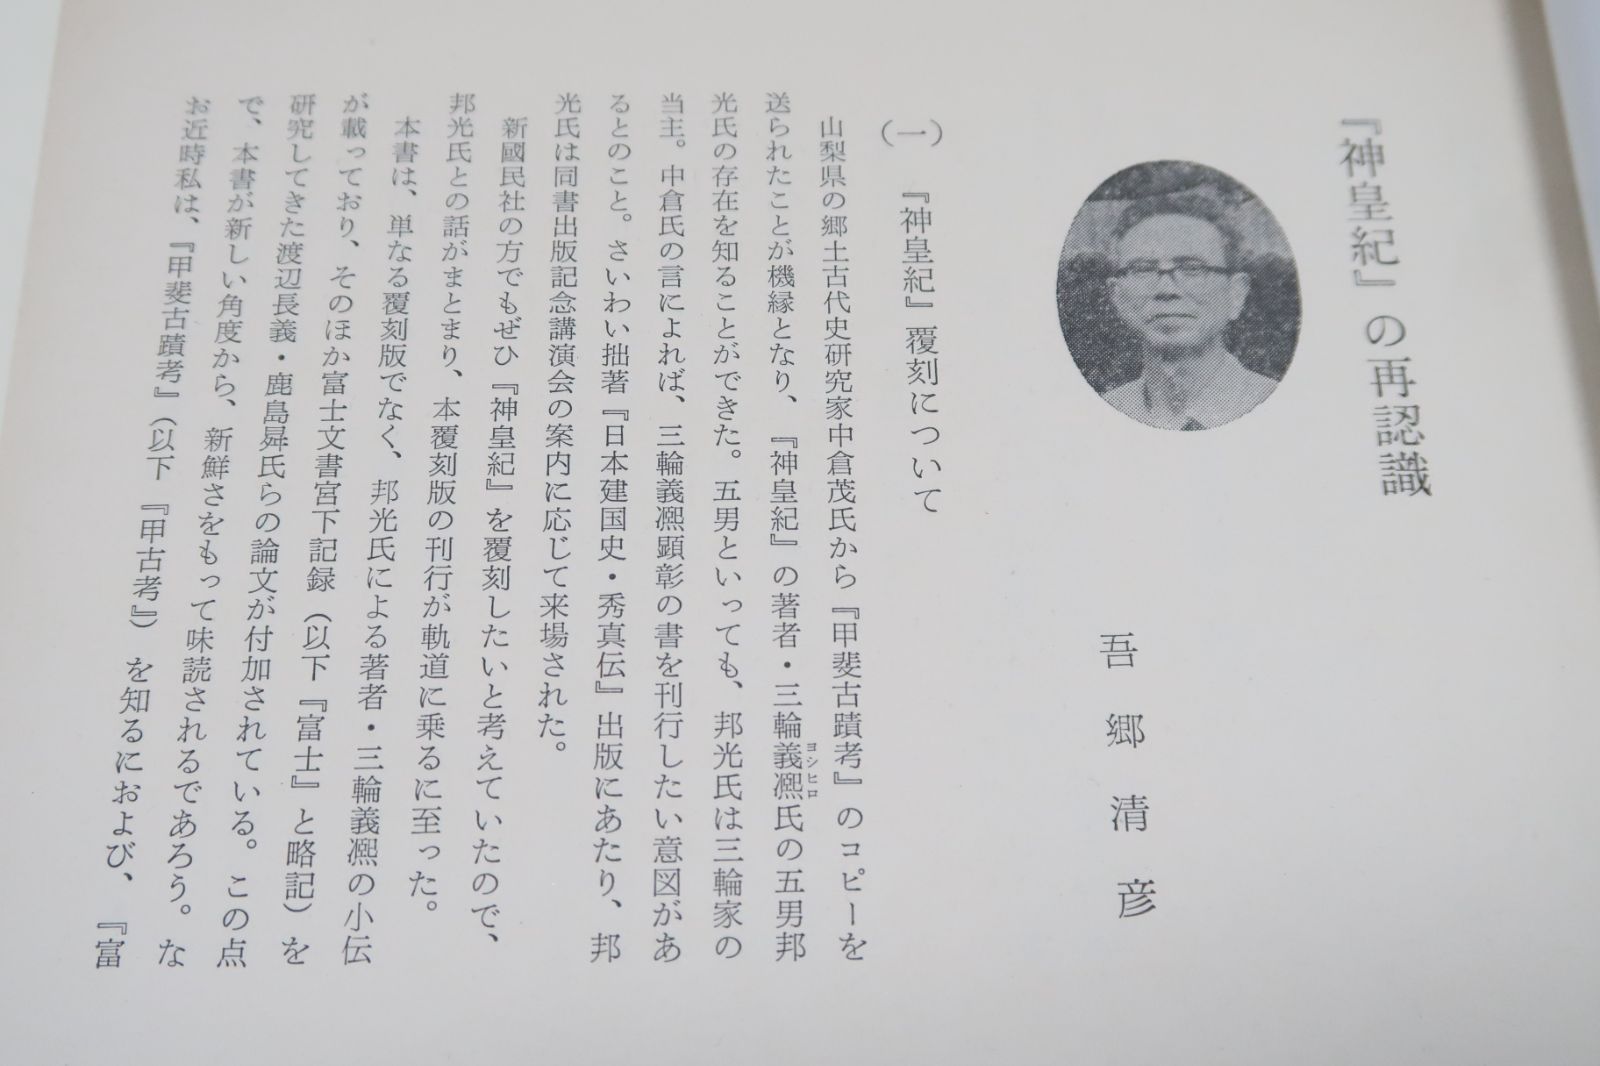 『神皇紀』の再認識
吾郷清彦
(一) 『神皇紀』覆刻について
山梨県の郷土古代史研究家中倉茂氏から『甲斐古蹟考』のコピーを
送られたことが機縁となり、『神皇紀』の著者・三輪義凞氏の五男邦
ヨシヒロ
光氏の存在を知ることができた。五男といっても、邦光氏は三輪家の
当主。中倉氏の言によれば、三輪義凞顕彰の書を刊行したい意図があ
るとのこと。さいわい拙著『日本建国史・秀真伝』出版にあたり、邦
光氏は同書出版記念講演会の案内に応じて来場された。
新國民社の方でもぜひ『神皇紀』を覆刻したいと考えていたので、
邦光氏との話がまとまり、本覆刻版の刊行が軌道に乗るに至った。
本書は、単なる覆刻版でなく、邦光氏による著者・三輪義凞の小伝
が載っており、そのほか富士文書宮下記録(以下『富士』と略記)を
研究してきた渡辺長義・鹿島曻氏らの論文が付加されている。この点
で、本書が新しい角度から、新鮮さをもって味読されるであろう。な
お近時私は、『甲斐古蹟考』(以下『甲古考』)を知るにおよび、『富